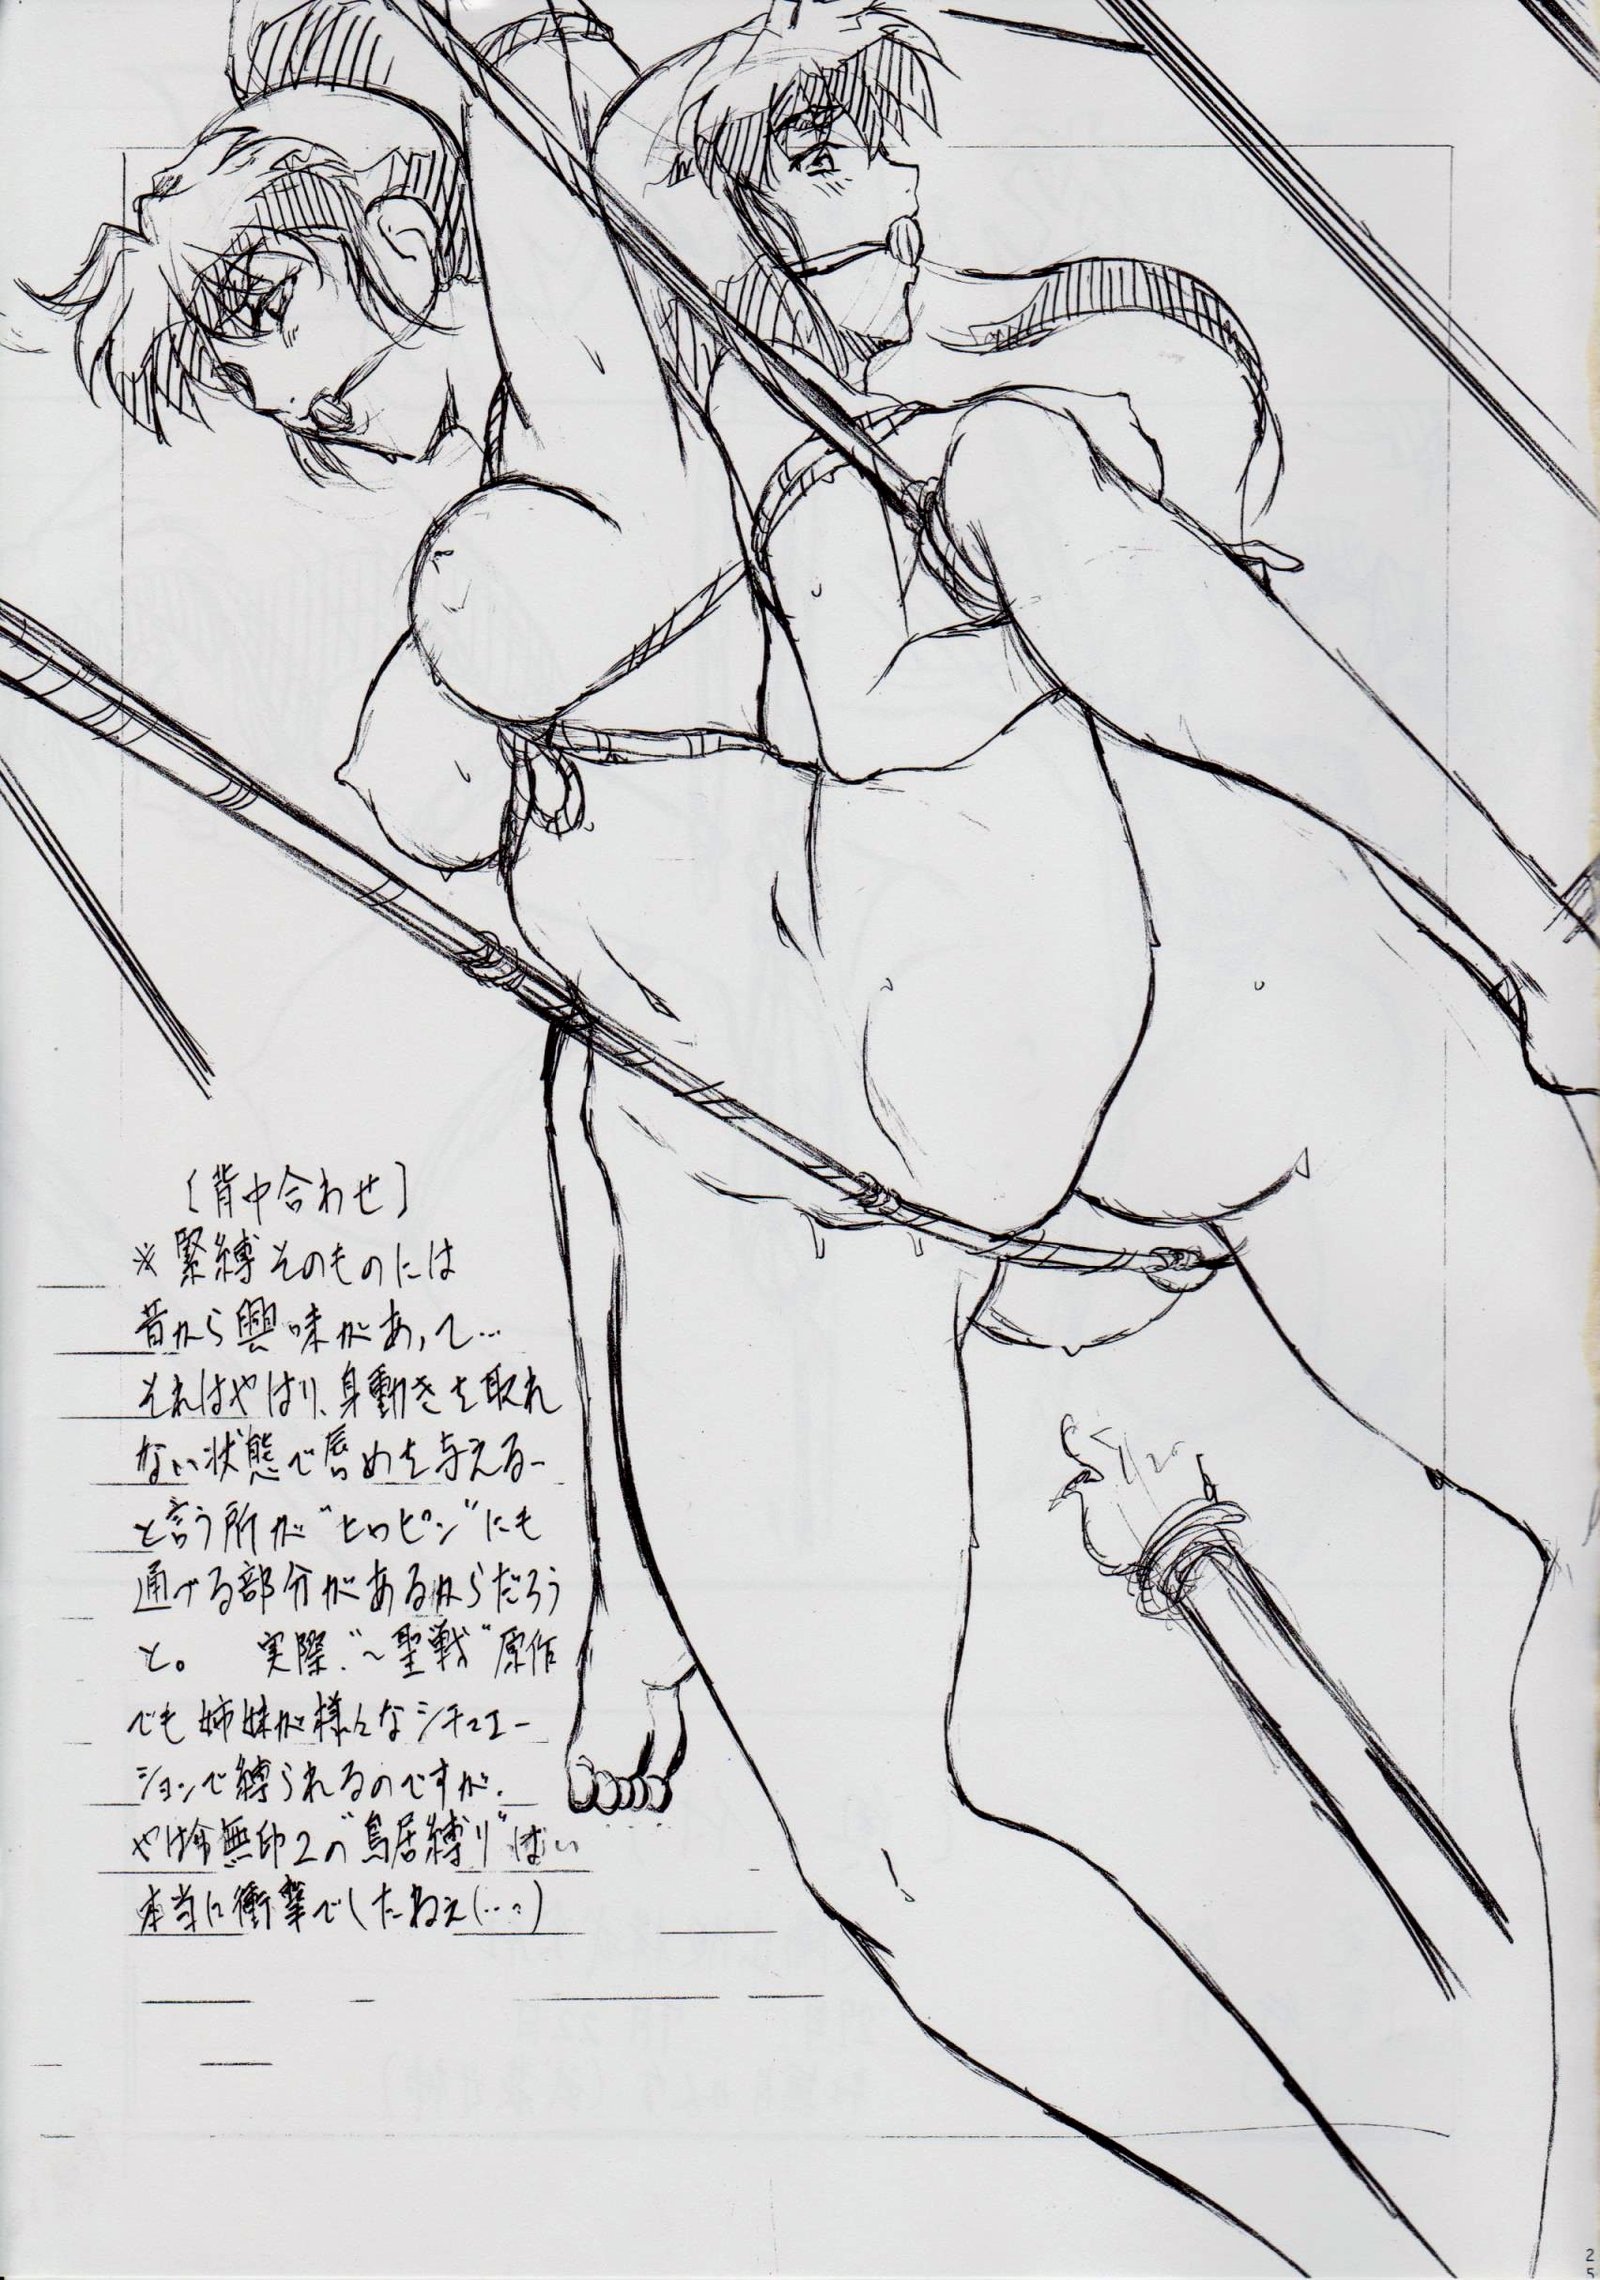 〔背中合わせ〕
※緊縛そのものには
昔から興味があって…
それはやはり、身動きを取れ
ない状態で辱めを与える―
と言う所が“ヒロピン”にも
通づる部分があるからだろう
と。 実際“～聖戦”原作
でも姉妹が様々なシチュエー
ションで縛られるのですが、
無印2の“鳥居縛り”は
本当に衝撃でしたねぇ(…
25